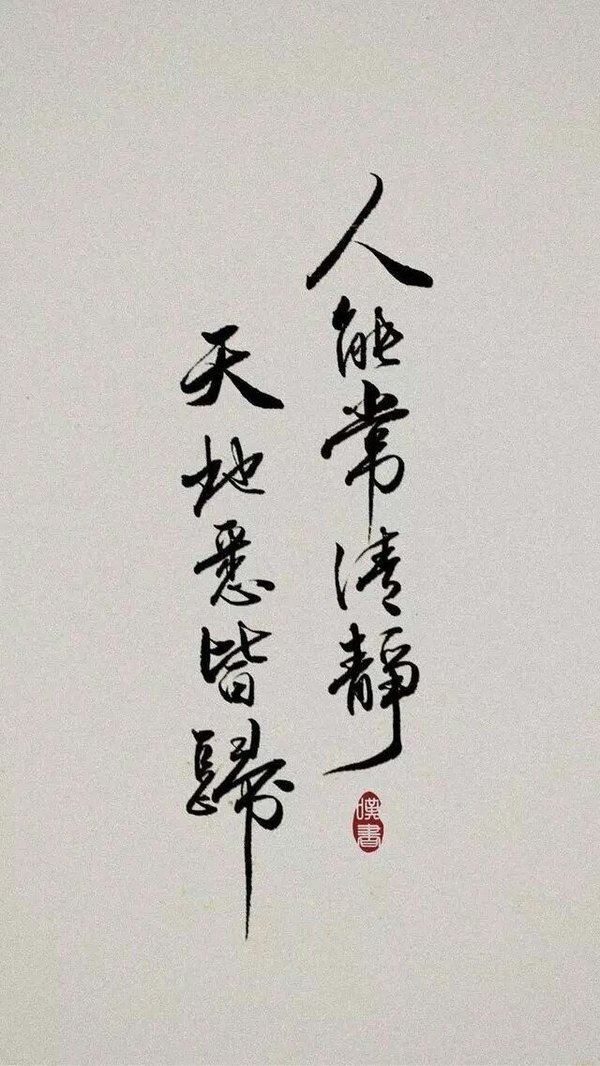 人能常清靜
天地悉皆歸
嘆書